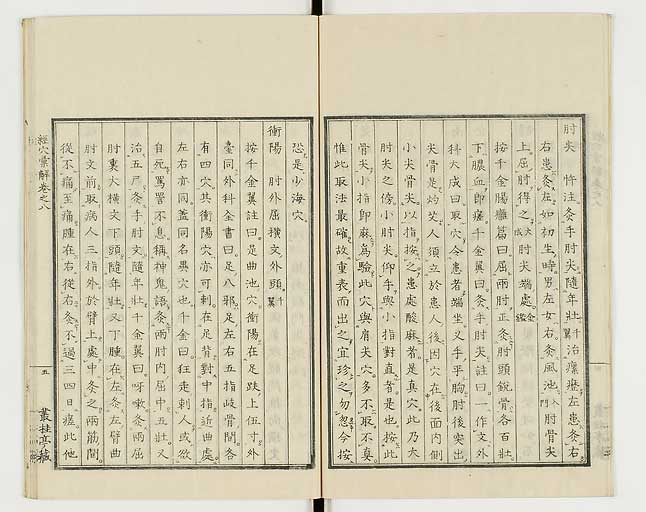 肘尖　忤注灸手肘尖隨年壯千翼治瘰癧左患灸右
右患灸左如初生時男左女右灸風池入門肘骨尖
上屈肘得之大成肘尖端處金鑑
按千金腸癰篇曰屈兩肘正灸肘頭銳骨各百壯
下膿血即瘥千金翼曰灸手肘尖註曰一作文外
科大成曰取穴令患者端坐叉手平胸肘後突出
尖骨是灼艾人須立於患人後因穴在後面内側
小尖骨尖以指按之患處酸麻者是真穴此乃大
肘尖之傍小肘尖仰手與小指對直者是也按此
骨尖小指即麻爲驗此穴與肩尖穴多不取不真
惟此取法最確故重表而出之宜珍之勿忽今按
恐是少海穴
衝陽　肘外屈橫文外頭千翼
按千金翼註曰是曲池穴衝陽在足趺上伍寸外
臺同外科金書曰足八邪足左右五指歧骨間各
有四穴共衝陽穴亦可刺在足背對中指近曲處
左右亦同蓋同名異穴也千金曰狂走刺人或欲
自死罵詈不息稱神鬼語灸兩肘内屈中五壯又
治五尸灸手肘文隨年壯千金翼曰呀嗽灸兩屈
肘裏大橫文下頭隨年壯又丁腫在左灸左臂曲
肘文前取病人三指外於臂上處中灸之兩筋間
從不痛至痛腫在右從右灸不過三四日瘥此他
經穴彙解卷之八
五
叢桂亭藏